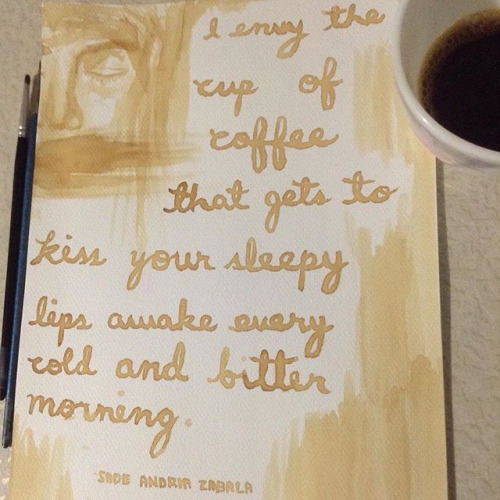 I envy the
cup of
coffee
that gets to
kiss your sleepy
lips awake every
cold and bitter
morning.
SADE ANDRIA ZABALA